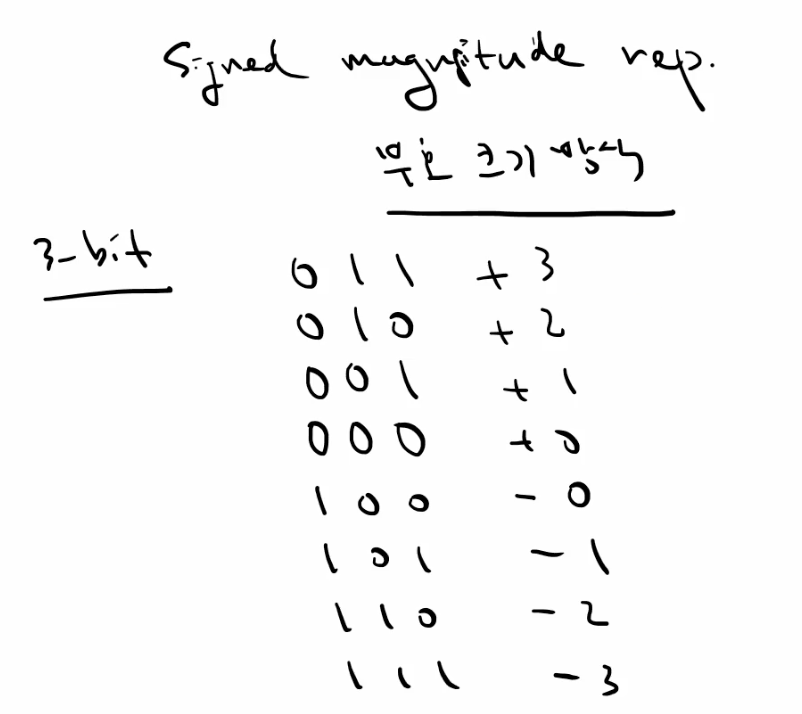 Signed magnitude rep.
부호 크기 방식
3-bit
0 1 1 + 3
0 1 0 + 2
0 0 1 + 1
0 0 0 + 0
1 0 0 - 0
1 0 1 - 1
1 1 0 - 2
1 1 1 - 3